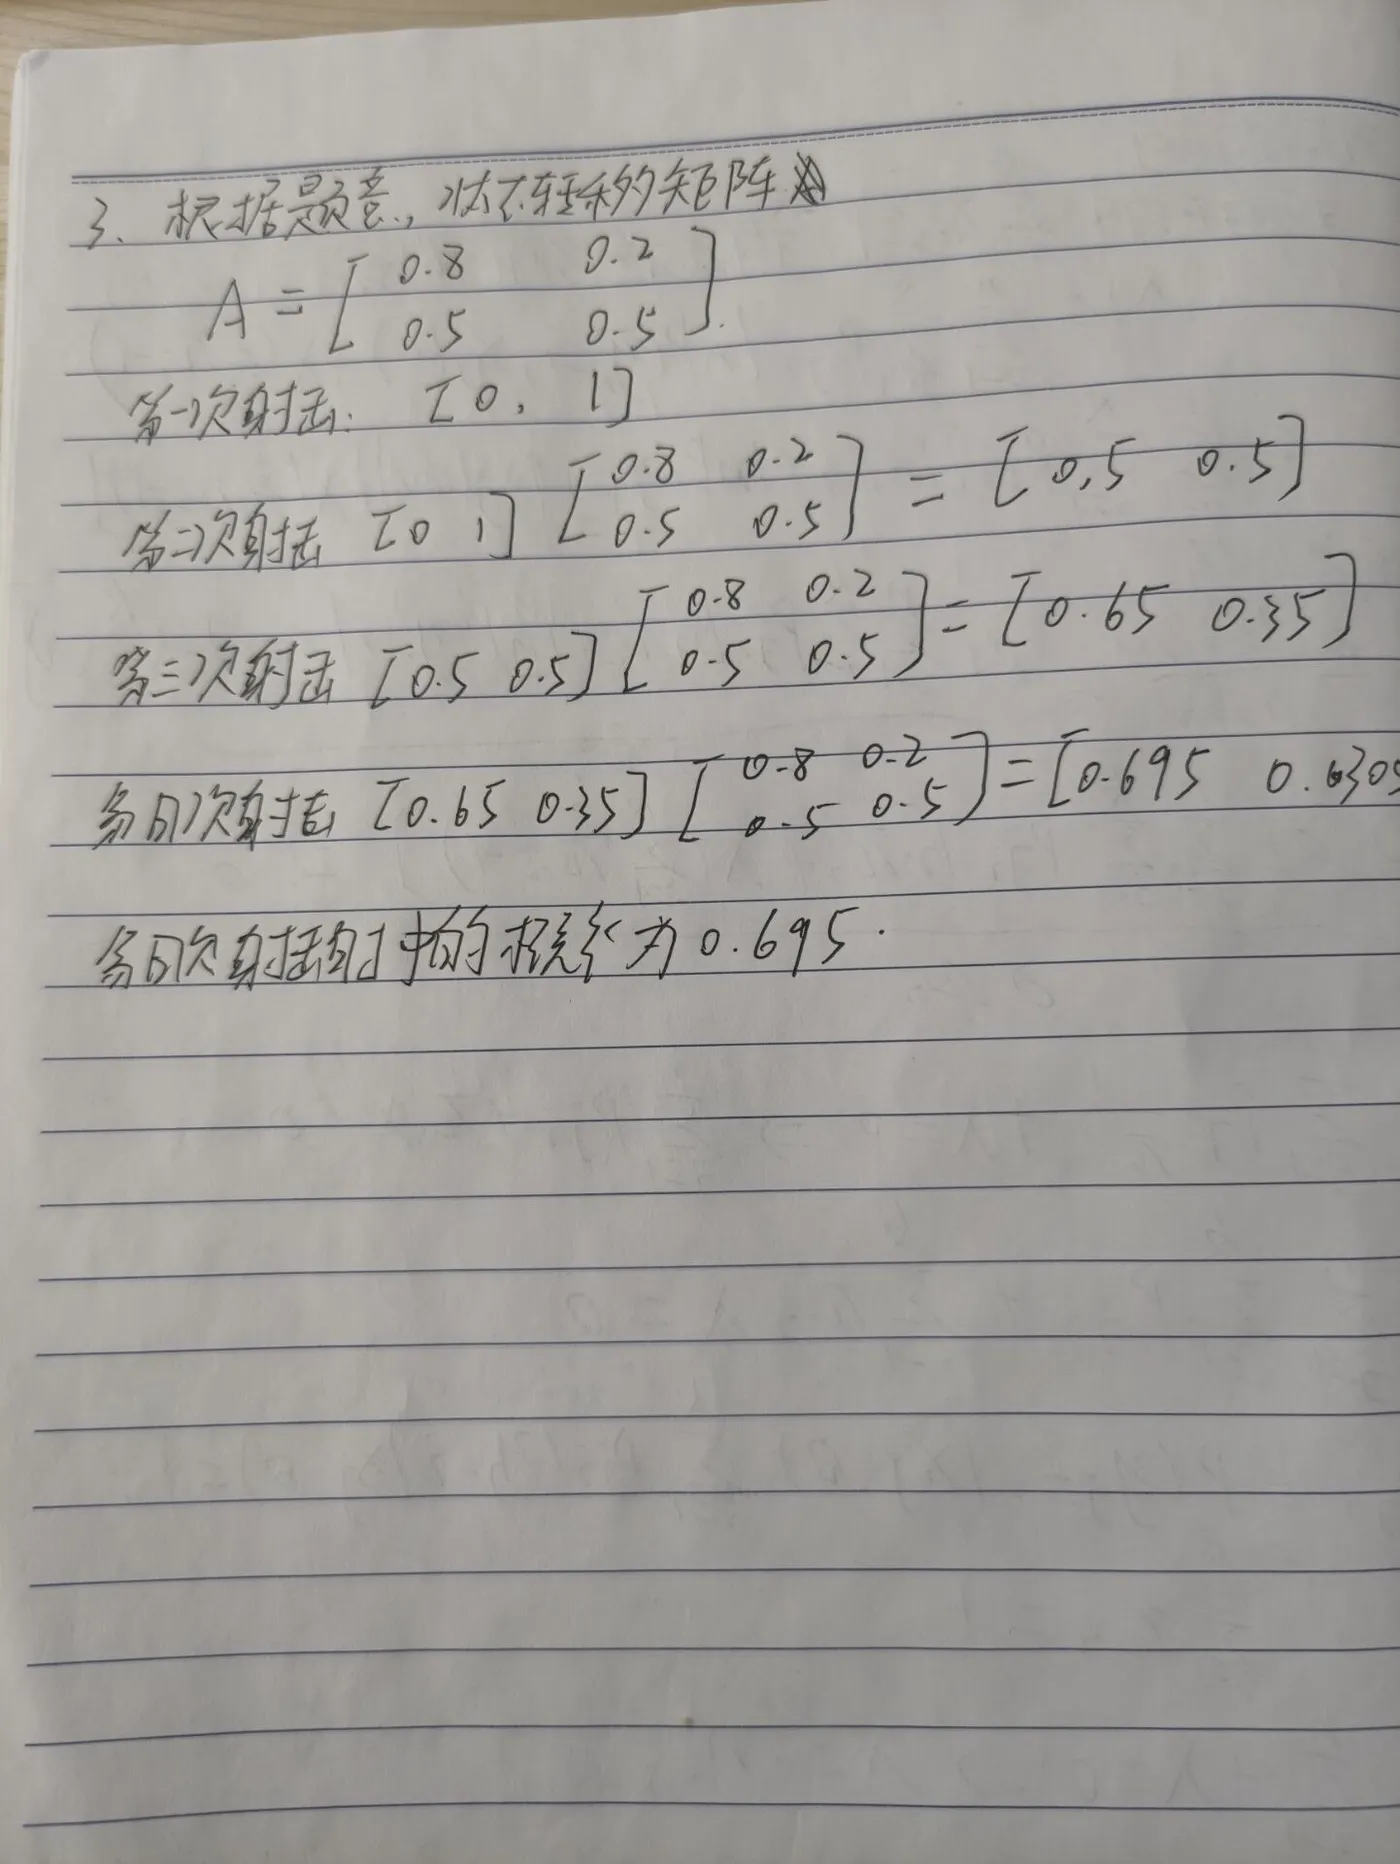 3、根据题意, 状态转移的矩阵
A = [ 0.8 0.2
0.5 0.5 ].
第一次射击: [0, 1]
第二次射击 [0 1] [ 0.8 0.2
0.5 0.5 ] = [0.5 0.5]
第三次射击 [0.5 0.5] [ 0.8 0.2
0.5 0.5 ] = [0.65 0.35]
第四次射击 [0.65 0.35] [ 0.8 0.2
0.5 0.5 ] = [0.695 0.305
第四次射击射中的概率为0.695.